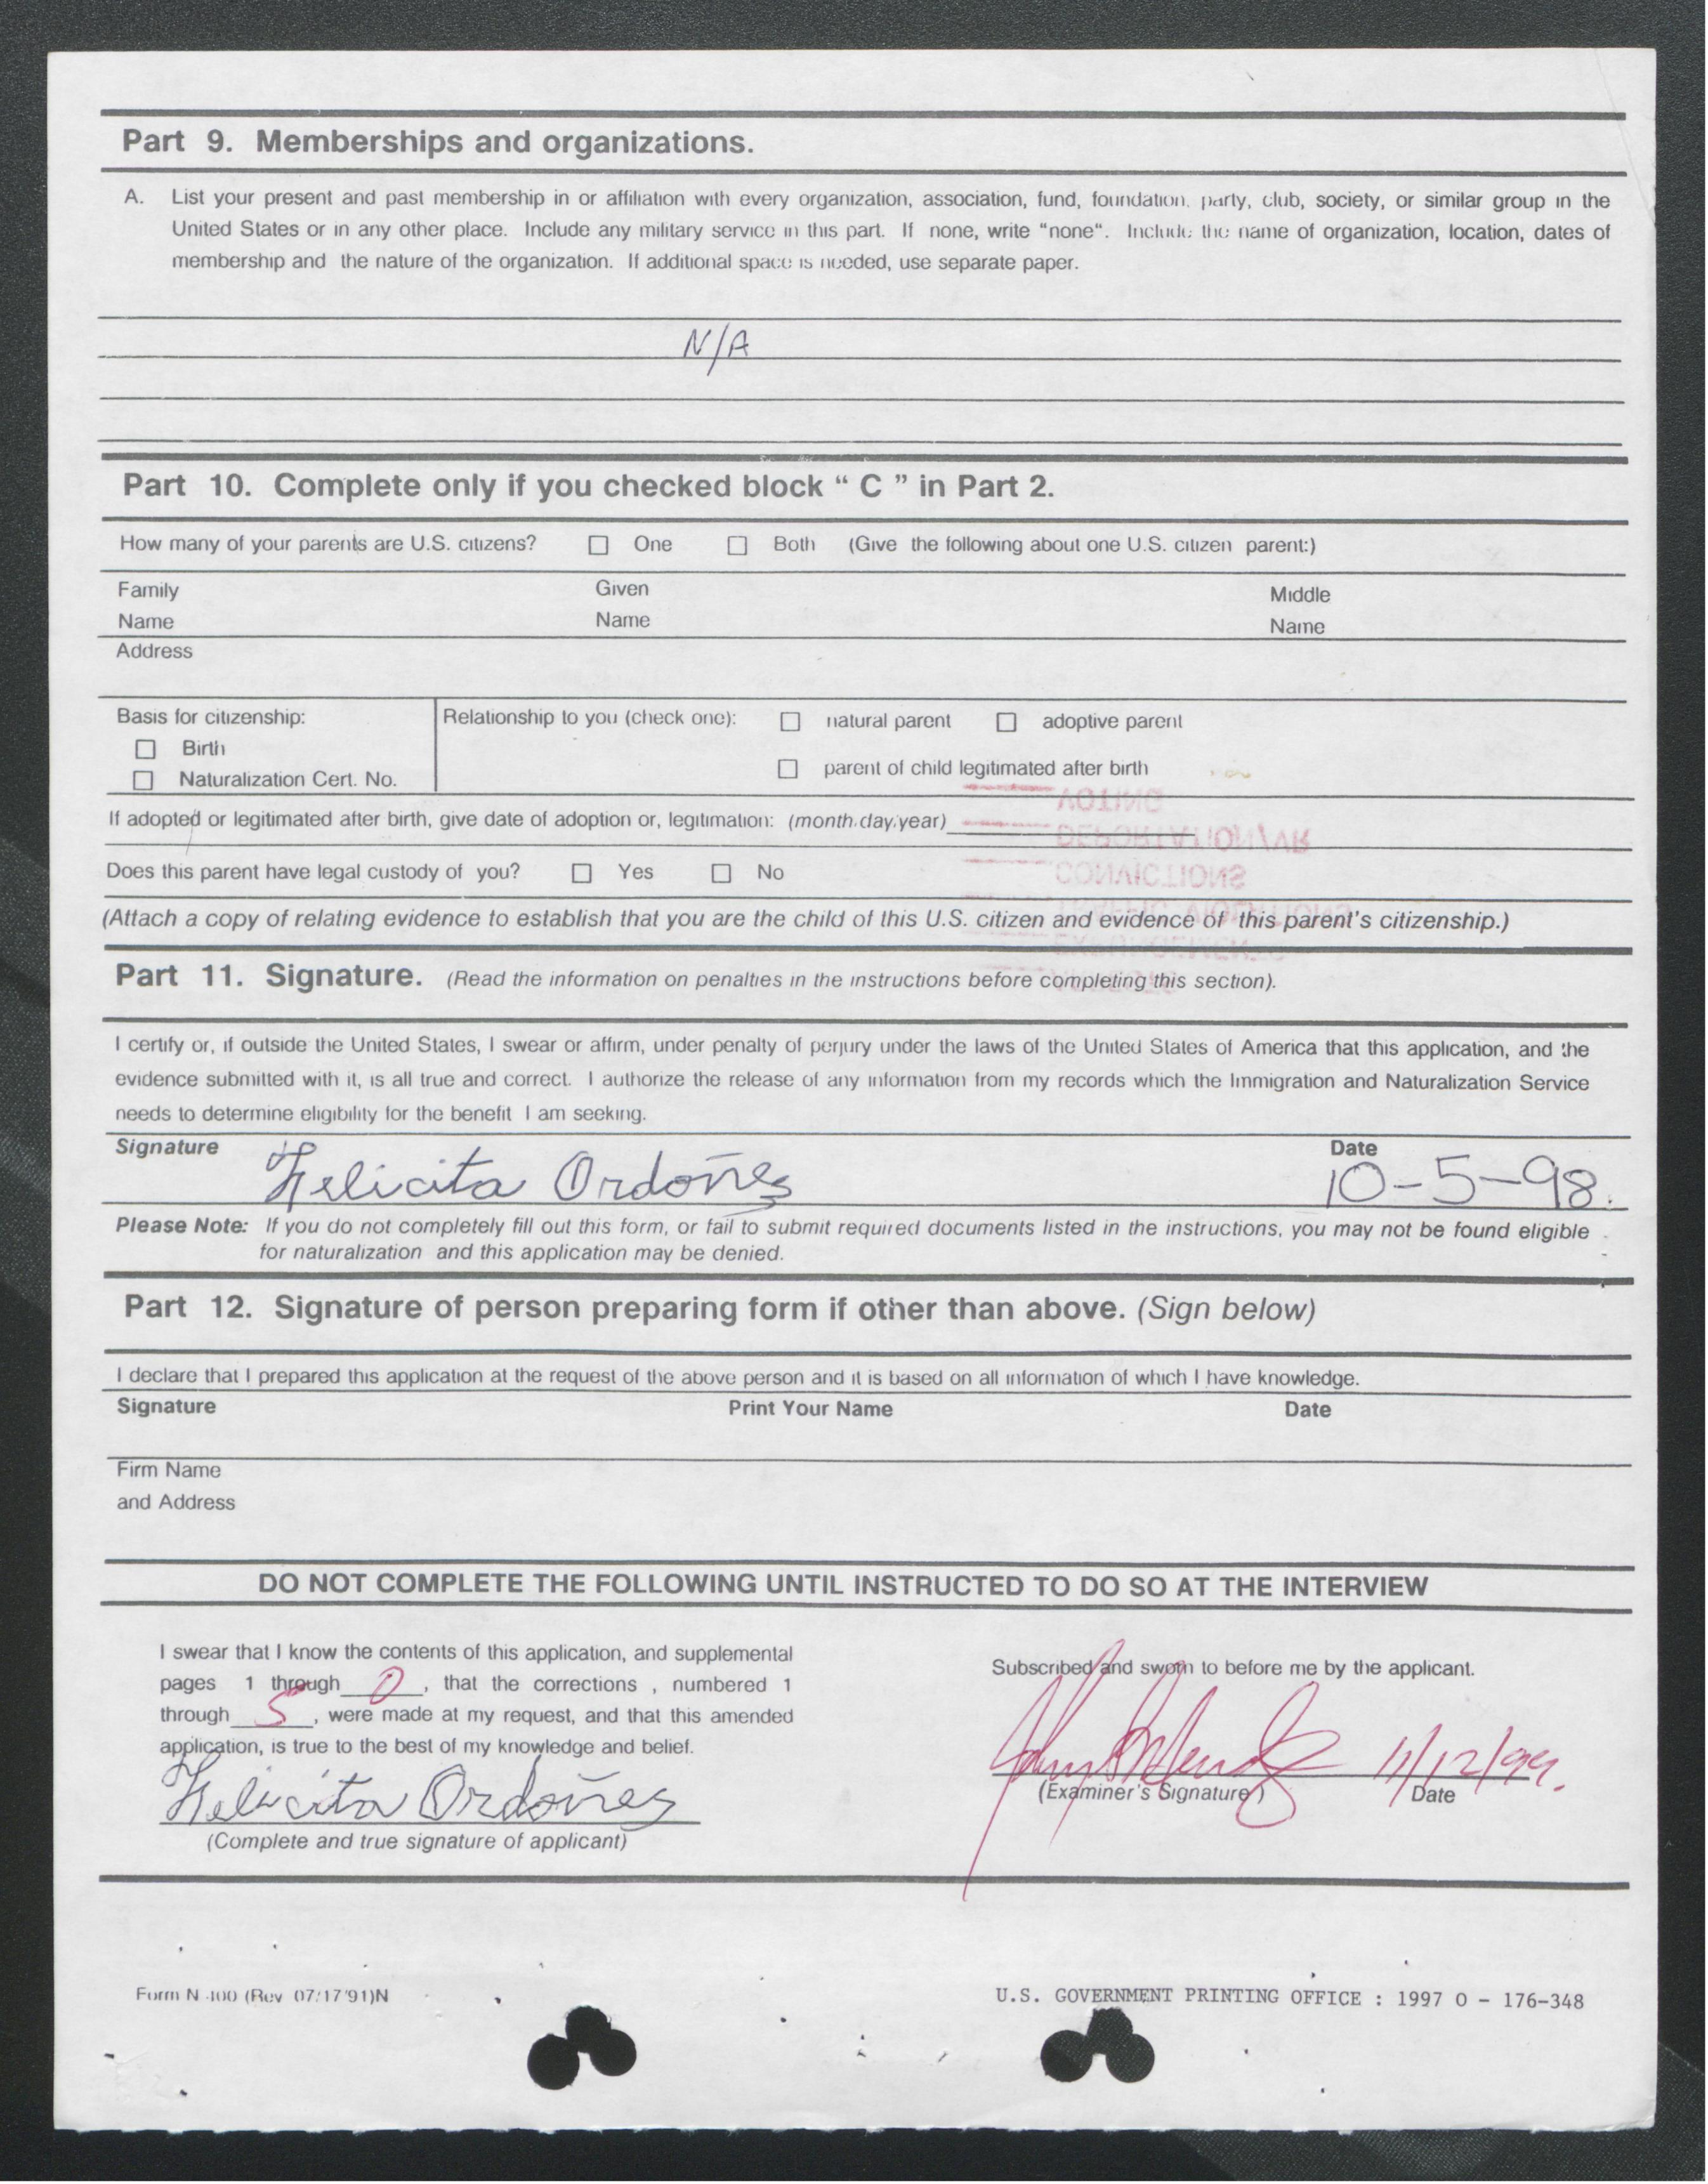 Part 9. Memberships and organizations.
A. List your present and past membership in or affiliation with every organization, association, fund, foundation, party, club, society, or similar group in the
United States or in any other place. Include any military service in this part. If none, write “none“. Include the name of organization, location, dates of
membership and the nature of the organization. If additional space is needed, use separate paper.
N/A
Part 10. Complete only if you checked block “ C ” in Part 2.
How many of your parents are U.S. citizens? ☐ One ☐ Both (Give the following about one U.S. citizen parent:)
Family Given Middle
Name Name Name
Address
Basis for citizenship: Relationship to you (check one): ☐ natural parent ☐ adoptive parent
☐ Birth
☐ parent of child legitimated after birth
☐ Naturalization Cert. No.
VOTING
If adopted or legitimated after birth, give date of adoption or, legitimation: (month/day/year)
DEPORTATION/VR
Does this parent have legal custody of you? ☐ Yes ☐ No
CONVICTIONS
TRAFFIC VIOLATIONS
(Attach a copy of relating evidence to establish that you are the child of this U.S. citizen and evidence of this parent's citizenship.)
Part 11. Signature. (Read the information on penalties in the instructions before completing this section).
I certify or, if outside the United States, I swear or affirm, under penalty of perjury under the laws of the United States of America that this application, and the
evidence submitted with it, is all true and correct. I authorize the release of any information from my records which the Immigration and Naturalization Service
needs to determine eligibility for the benefit I am seeking.
Signature Felicita Ordoñes Date 10-5-98.
Please Note: If you do not completely fill out this form, or fail to submit required documents listed in the instructions, you may not be found eligible
for naturalization and this application may be denied.
Part 12. Signature of person preparing form if other than above. (Sign below)
I declare that I prepared this application at the request of the above person and it is based on all information of which I have knowledge.
Signature Print Your Name Date
Firm Name
and Address
DO NOT COMPLETE THE FOLLOWING UNTIL INSTRUCTED TO DO SO AT THE INTERVIEW
I swear that I know the contents of this application, and supplemental
pages 1 through 0, that the corrections , numbered 1
through 5, were made at my request, and that this amended
application, is true to the best of my knowledge and belief.
Felicita Ordoñes
(Complete and true signature of applicant)
Subscribed and sworn to before me by the applicant.
11/12/99.
(Examiner's Signature) Date
Form N-400 (Rev 07/17/91)N
U.S. GOVERNMENT PRINTING OFFICE : 1997 O - 176-348